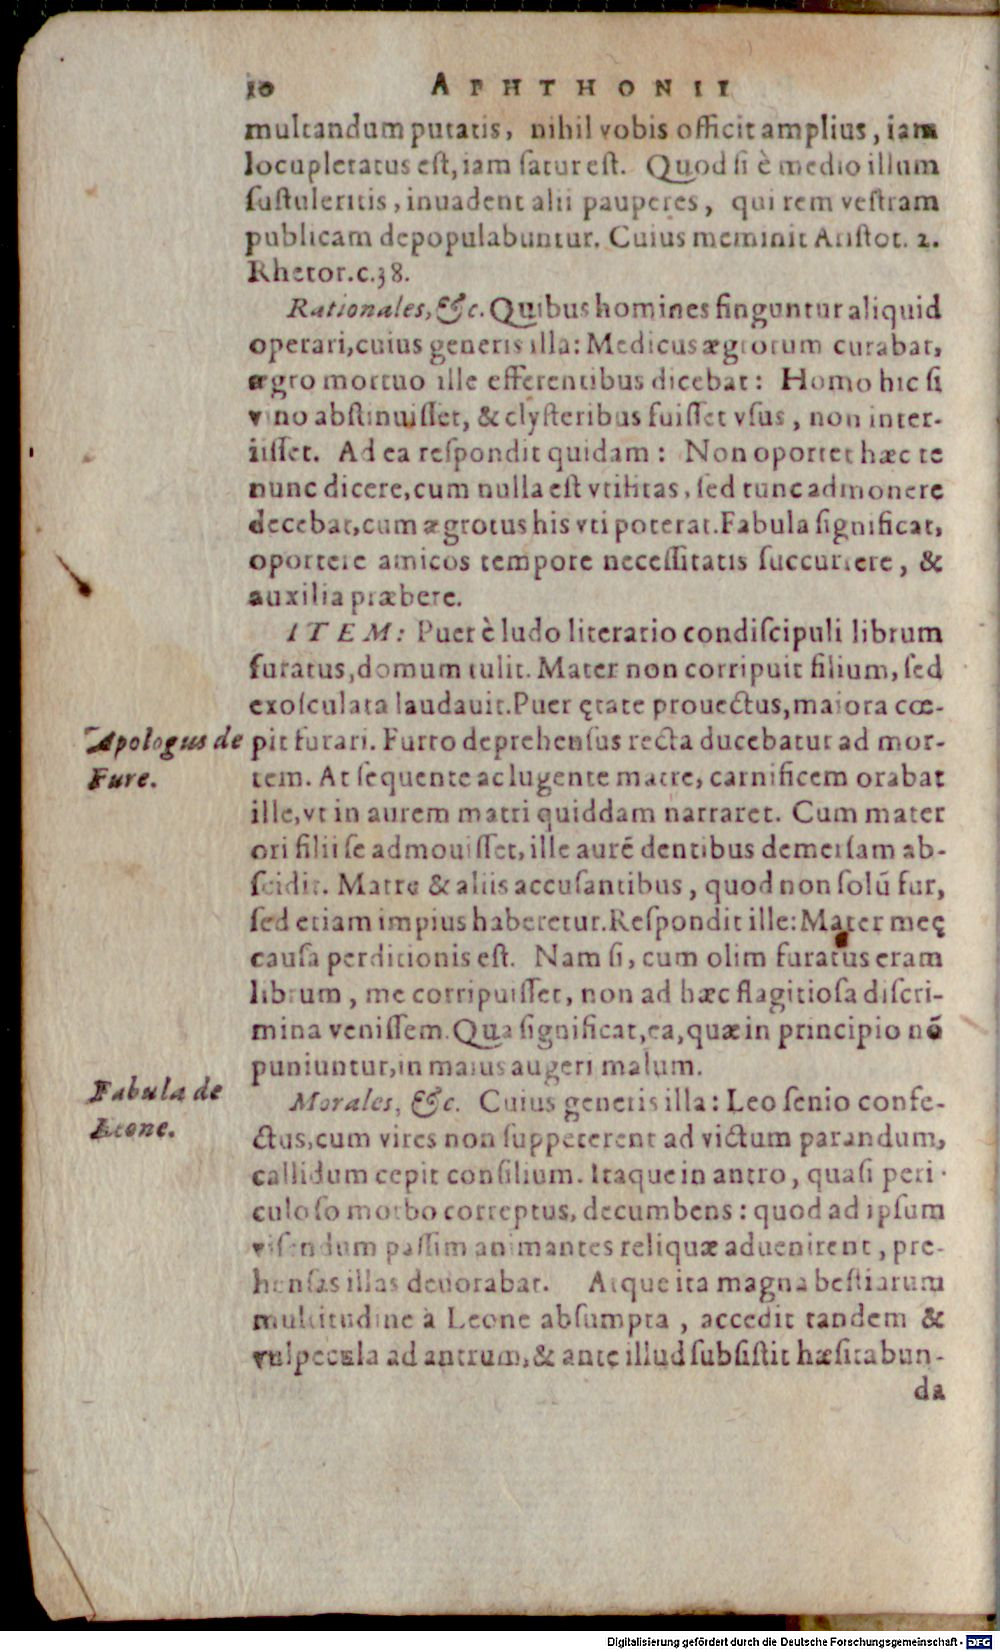 10 APHTHONII
multandum putatis, nihil vobis officit amplius, iam
locupletatus est, iam satur est. Quod si è medio illum
sustuleritis, inuadent alii pauperes, qui rem vestram
publicam depopulabuntur. Cuius meminit Aristot. 2.
Rhetor. c. 38.
Rationales, &c. Quibus homines finguntur aliquid
operari, cuius generis illa: Medicus ægrotum curabat,
ægro mortuo ille efferentibus dicebat: Homo hic si
vino abstinuisset, & clysteribus fuisset vsus, non inter-
iisset. Ad ea respondit quidam: Non oportet hæc te
nunc dicere, cum nulla est vtilitas, sed tunc admonere
decebat, cum ægrotus his vti poterat. Fabula significat,
oportere amicos tempore necessitatis succurrere, &
auxilia præbere.
ITEM: Puer è ludo literario condiscipuli librum
furatus, domum tulit. Mater non corripuit filium, sed
exosculata laudauit. Puer ętate prouectus, maiora cœ-
Apologus de
Fure.
pit furari. Furto deprehensus recta ducebatur ad mor-
tem. At sequente ac lugente matre, carnificem orabat
ille, vt in aurem matri quiddam narraret. Cum mater
ori filii se admouisset, ille aurē dentibus demersam ab-
scidit. Matre & aliis accusantibus, quod non solū fur,
sed etiam impius haberetur. Respondit ille: Mater meę
causa perditionis est. Nam si, cum olim furatus eram
librum, me corripuisset, non ad hæc flagitiosa discri-
mina venissem. Qua significat, ea, quæ in principio nō
puniuntur, in maius augeri malum.
Fabula de
Leone.
Morales, &c. Cuius generis illa: Leo senio confe-
ctus, cum vires non suppeterent ad victum parandum,
callidum cepit consilium. Itaque in antro, quasi peri-
culoso morbo correptus, decumbens: quod ad ipsum
visendum passim animantes reliquæ aduenirent, pre-
hensas illas deuorabat. Atque ita magna bestiarum
multitudine à Leone absumpta, accedit tandem &
vulpecula ad antrum, & ante illud subsistit hæsitabun-
da
Digitalisierung gefördert durch die Deutsche Forschungsgemeinschaft - DFG